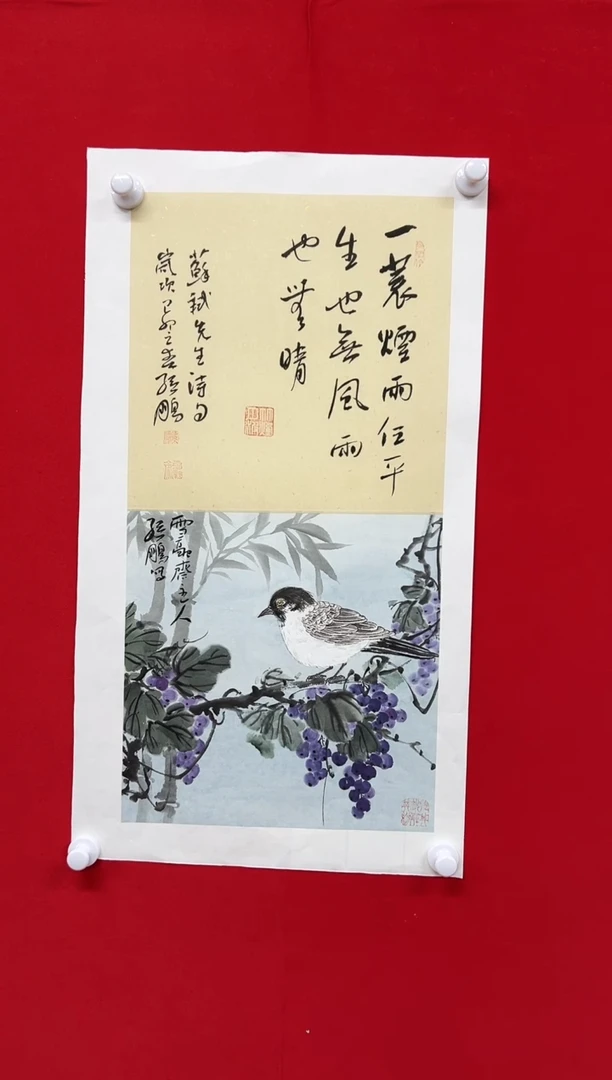 一蓑煙雨任平
生也無風雨
也無晴
蘇軾先生詩句
歲次己卯之春張鵬
雪齋主人
張鵬寫